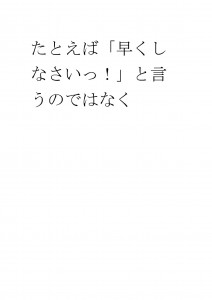 たとえば「早くし
なさいっ！」と言
うのではなく